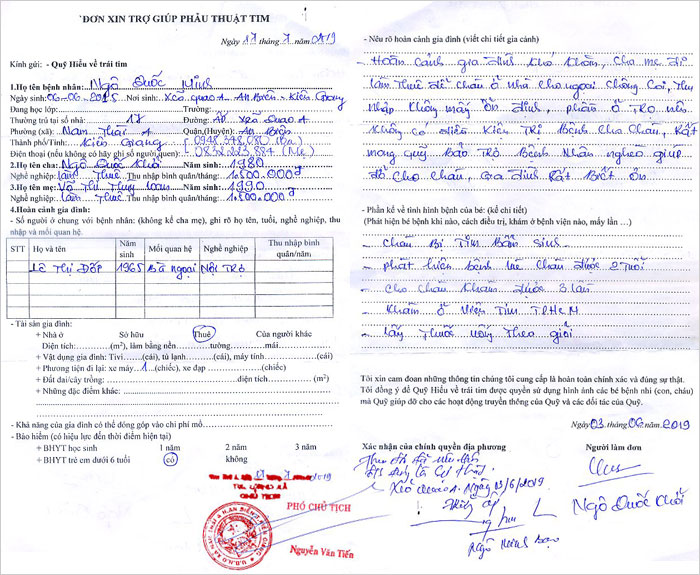 ĐƠN XIN TRỢ GIÚP PHẪU THUẬT TIM
Ngày 17 tháng 7 năm 2019
Kính gửi: - Quỹ Hiểu về trái tim
1.Họ tên bệnh nhân: Ngô Quốc Minh
Ngày sinh: 06-06-2015 Nơi sinh: Xẻo quao A - An Biên - Kiên Giang
Đang học lớp: Trường:
Thường trú tại số nhà: 17 Đường: ấp Xẻo Quao A
Phường (xã): Nam Thái A Quận,(Huyện): An Biên
Thành phố/Tỉnh: Kiên Giang (0948.348.080 (Ba)
Điện thoại (nếu không có hãy ghi số người quen): 0832.233.884 (Mẹ)
2.Họ tên cha: Ngô Quốc Khởi Năm sinh: 1980
Nghề nghiệp: làm Thuê Thu nhập bình quân/tháng: 1.500.000đ
3.Họ tên mẹ: Võ Thị Thúy loan Năm sinh: 1990
Nghề nghiệp: làm Thuê Thu nhập bình quân/tháng: 1.500.000đ
4.Hoàn cảnh gia đình:
- Số người ở chung với bệnh nhân: (không kể cha mẹ), ghi rõ họ tên, tuổi, nghề nghiệp, thu
nhập và mối quan hệ.
STT Họ và tên Năm sinh Mối quan hệ Nghề nghiệp Thu nhập bình quân/năm
Lê Thị Đốp 1965 Bà ngoại Nội Trợ
- Tài sản gia đình:
+ Nhà ở Sở hữu Thuê Của người khác
Diện tích: (m²), làm bằng nền tường mái
+ Vật dụng gia đình: Tivi (cái), tủ lạnh (cái), máy tính (cái)
+ Phương tiện đi lại: xe máy 1 (chiếc), xe đạp (chiếc)
+ Đất đai/cây trồng: diện tích (m²)
+ Những đặc điểm khác:
- Khả năng của gia đình có thể đóng góp vào chi phí mổ
- Bảo hiểm (có hiệu lực đến thời điểm hiện tại)
+ BHYT học sinh 1 năm 2 năm 3 năm
+ BHYT trẻ em dưới 6 tuổi có không
PHÓ CHỦ TỊCH
Nguyễn Văn Tiến
- Nêu rõ hoàn cảnh gia đình (viết chi tiết gia cảnh)
- Hoàn cảnh gia đình khó khăn, cha mẹ đi
làm Thuê để cháu ở nhà cho ngoại chông coi, Thu
nhập không mấy ổn định, phần ở Trọ nên
không có điều kiện Trị Bệnh cho cháu, Rất
mong quỹ Bảo Trợ Bệnh Nhân nghèo giúp
đỡ cho cháu, gia đình Rất Biết ơn
- Phần kể về tình hình bệnh của bé: (kể chi tiết)
(Phát hiện bệnh khi nào, cách điều trị, khám ở bệnh viện nào, mấy lần …)
- cháu Bị Tim Bẩm sinh
- phát hiện bệnh lúc cháu được 2 Tuổi
- cho cháu khám được 3 lần
- khám ở viện Tim TPHCM
- lấy Thuốc uống Theo giỏi
Tôi xin cam đoan những thông tin chúng tôi cung cấp là hoàn toàn chính xác và đúng sự thật.
Tôi đồng ý để Quỹ Hiểu về trái tim được quyền sử dụng hình ảnh các bé bệnh nhi (con, cháu)
mà Quỹ giúp đỡ cho các hoạt động truyền thông của Quỹ và các đối tác của Quỹ.
Ngày 03 tháng 06 năm 2019
Xác nhận của chính quyền địa phương
Người làm đơn
Xẻo quao A. Ngày 13/6/2019
Ngô Quốc Khởi